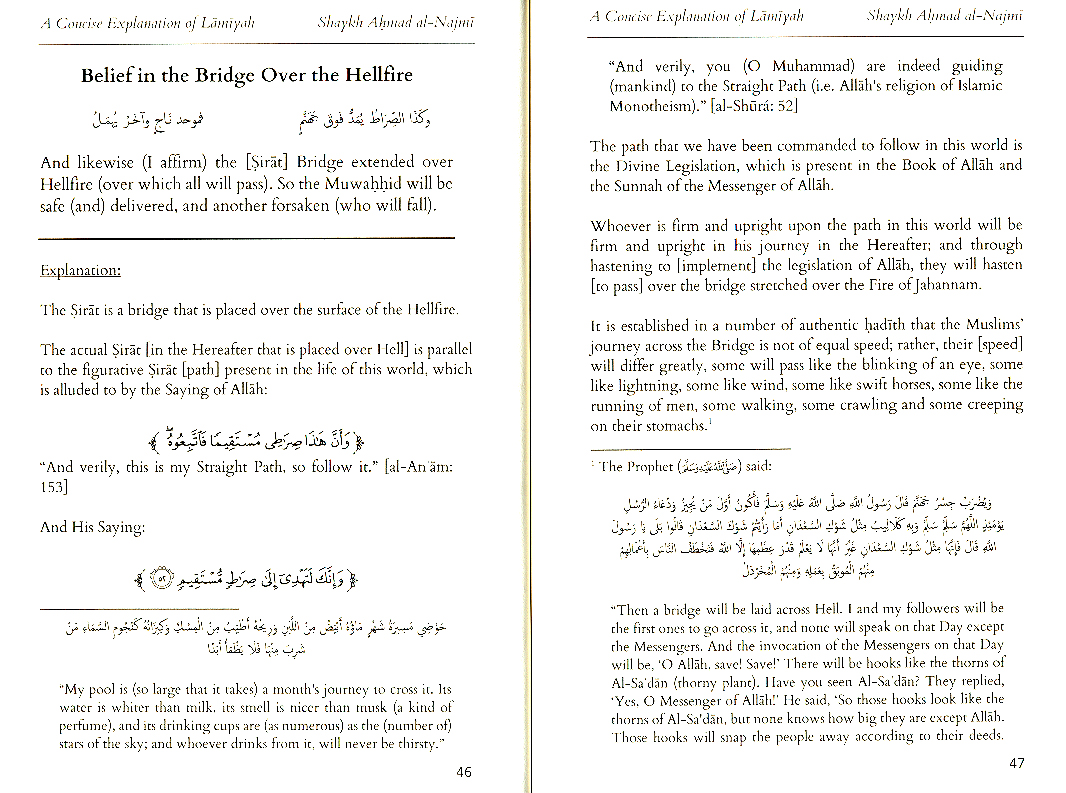 A Concise Explanation of Lāmiyah Shaykh Aḥmad al-Najmī
Belief in the Bridge Over the Hellfire
وَكَذَا الصِّرَاطُ يُمَدُّ فَوْقَ جَهَنَّمٍ فَمُوَحِّدٌ نَاجٍ وَآخَرُ يُهْمَلُ
And likewise (I affirm) the [Ṣirāt] Bridge extended over
Hellfire (over which all will pass). So the Muwaḥḥid will be
safe (and) delivered, and another forsaken (who will fall).
Explanation:
The Ṣirāt is a bridge that is placed over the surface of the Hellfire.
The actual Ṣirāt [in the Hereafter that is placed over Hell] is parallel
to the figurative Ṣirāt [path] present in the life of this world, which
is alluded to by the Saying of Allāh:
﴿ وَأَنَّ هَٰذَا صِرَٰطِى مُسْتَقِيمًا فَٱتَّبِعُوهُ ﴾
“And verily, this is my Straight Path, so follow it.” [al-An'ām:
153]
And His Saying:
﴿ وَإِنَّكَ لَتَهْدِىٓ إِلَىٰ صِرَٰطٍ مُّسْتَقِيمٍ ٥٢ ﴾
حَوْضِي مَسِيرَةُ شَهْرٍ مَاؤُهُ أَبْيَضُ مِنَ اللَّبَنِ وَرِيحُهُ أَطْيَبُ مِنَ الْمِسْكِ وَكِيزَانُهُ كَنُجُومِ السَّمَاءِ مَنْ
شَرِبَ مِنْهَا فَلَا يَظْمَأُ أَبَدًا
“My pool is (so large that it takes) a month's journey to cross it. Its
water is whiter than milk, its smell is nicer than musk (a kind of
perfume), and its drinking cups are (as numerous) as the (number of)
stars of the sky; and whoever drinks from it, will never be thirsty.”
46
A Concise Explanation of Lāmiyah Shaykh Aḥmad al-Najmī
“And verily, you (O Muhammad) are indeed guiding
(mankind) to the Straight Path (i.e. Allāh's religion of Islamic
Monotheism).” [al-Shūrá: 52]
The path that we have been commanded to follow in this world is
the Divine Legislation, which is present in the Book of Allāh and
the Sunnah of the Messenger of Allāh.
Whoever is firm and upright upon the path in this world will be
firm and upright in his journey in the Hereafter; and through
hastening to [implement] the legislation of Allāh, they will hasten
[to pass] over the bridge stretched over the Fire of Jahannam.
It is established in a number of authentic ḥadīth that the Muslims'
journey across the Bridge is not of equal speed; rather, their [speed]
will differ greatly, some will pass like the blinking of an eye, some
like lightning, some like wind, some like swift horses, some like the
running of men, some walking, some crawling and some creeping
on their stomachs.¹
¹ The Prophet (ﷺ) said:
وَيُضْرَبُ جِسْرُ جَهَنَّمَ قَالَ رَسُولُ اللَّهِ صَلَّى اللَّهُ عَلَيْهِ وَسَلَّمَ فَأَكُونُ أَوَّلَ مَنْ يُجِيزُ وَدُعَاءُ الرُّسُلِ
يَوْمَئِذٍ اللَّهُمَّ سَلِّمْ سَلِّمْ وَبِهِ كَلَالِيبُ مِثْلُ شَوْكِ السَّعْدَانِ أَمَا رَأَيْتُمْ شَوْكَ السَّعْدَانِ قَالُوا بَلَى يَا رَسُولَ
اللَّهِ قَالَ فَإِنَّهَا مِثْلُ شَوْكِ السَّعْدَانِ غَيْرَ أَنَّهَا لَا يَعْلَمُ قَدْرَ عِظَمِهَا إِلَّا اللَّهُ فَتَخْطَفُ النَّاسَ بِأَعْمَالِهِمْ
مِنْهُمْ الْمُوبَقُ بِعَمَلِهِ وَمِنْهُمْ الْمُخَرْدَلُ
“Then a bridge will be laid across Hell. I and my followers will be
the first ones to go across it, and none will speak on that Day except
the Messengers. And the invocation of the Messengers on that Day
will be, ‘O Allāh, save! Save!’ There will be hooks like the thorns of
Al-Sa'dān (thorny plant). Have you seen Al-Sa'dān? They replied,
‘Yes, O Messenger of Allāh!’ He said, ‘So those hooks look like the
thorns of Al-Sa'dān, but none knows how big they are except Allāh.
Those hooks will snap the people away according to their deeds.
47